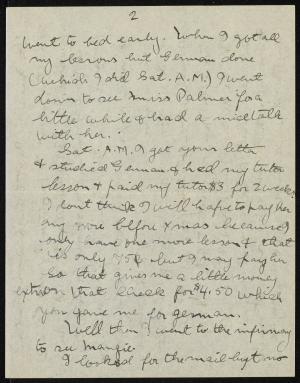 2
went to bed early. When I got all
my lessons but German done
(which I did Sat. A.M.) I went
down to see Miss Palmer for a
little while & had a nice talk
with her.
Sat. A.M. I got your letter
& studied German & had my tutor
lesson & paid my tutor $3 for 2 weeks
I don't think I will have to pay her
any more before Xmas because I
only have one more lesson & that
is only 75¢ but I may pay her
So that gives me a little money
extra on that check for $4.50 which
you gave me for german.
Well then I went to the infirmary
to see Margie.
I looked for the mail but no